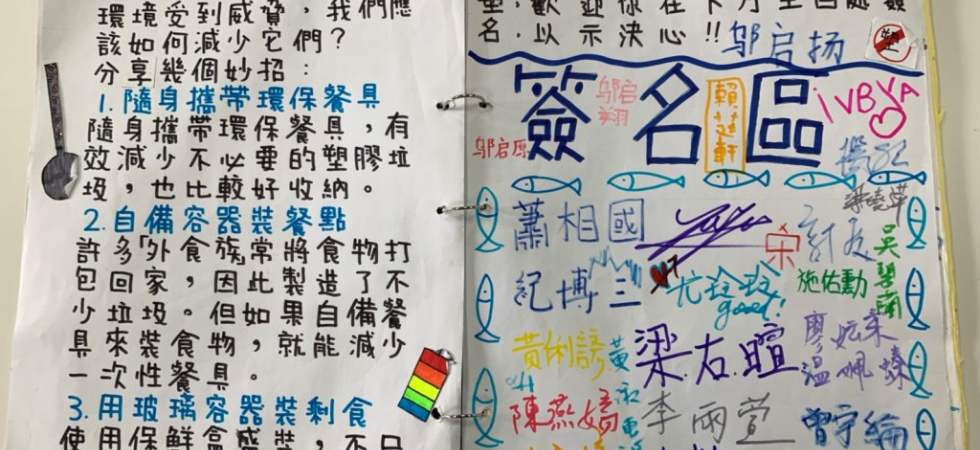 環境受到威脅，我們應
該如何減少它們？
分享幾個妙招：
1.隨身攜帶環保餐具
隨身攜帶環保餐具，有
效減少不必要的塑膠垃
圾，也比較好收納。
2.自備容器裝餐點
許多「外食族」常將食物打
包回家，因此製造了不
少垃圾。但如果自備餐
具來裝食物，就能減少
一次性餐具。
3.用玻璃容器裝剩食
使用保鮮盒盛裝，不只
歡迎你在下方空白處簽
名，以示決心!!
邬启扬
塑
簽名區
邬启翔
賴
軒
iVBYA
邬启原
蕭相國
宋
吳碧蘭
紀博三
尤玲玲
good!
施佑勳
黃俐諺
梁右暄
廖妘采
溫珮臻
陳燕嬌
李雨萱
曾宇綸